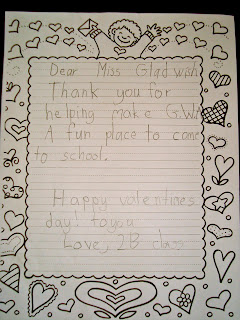 Dear Miss Gladwish
Thank you for
helping make G.W.
A fun place to come
to school.
Happy valentines
day! to you
Love, 2B class